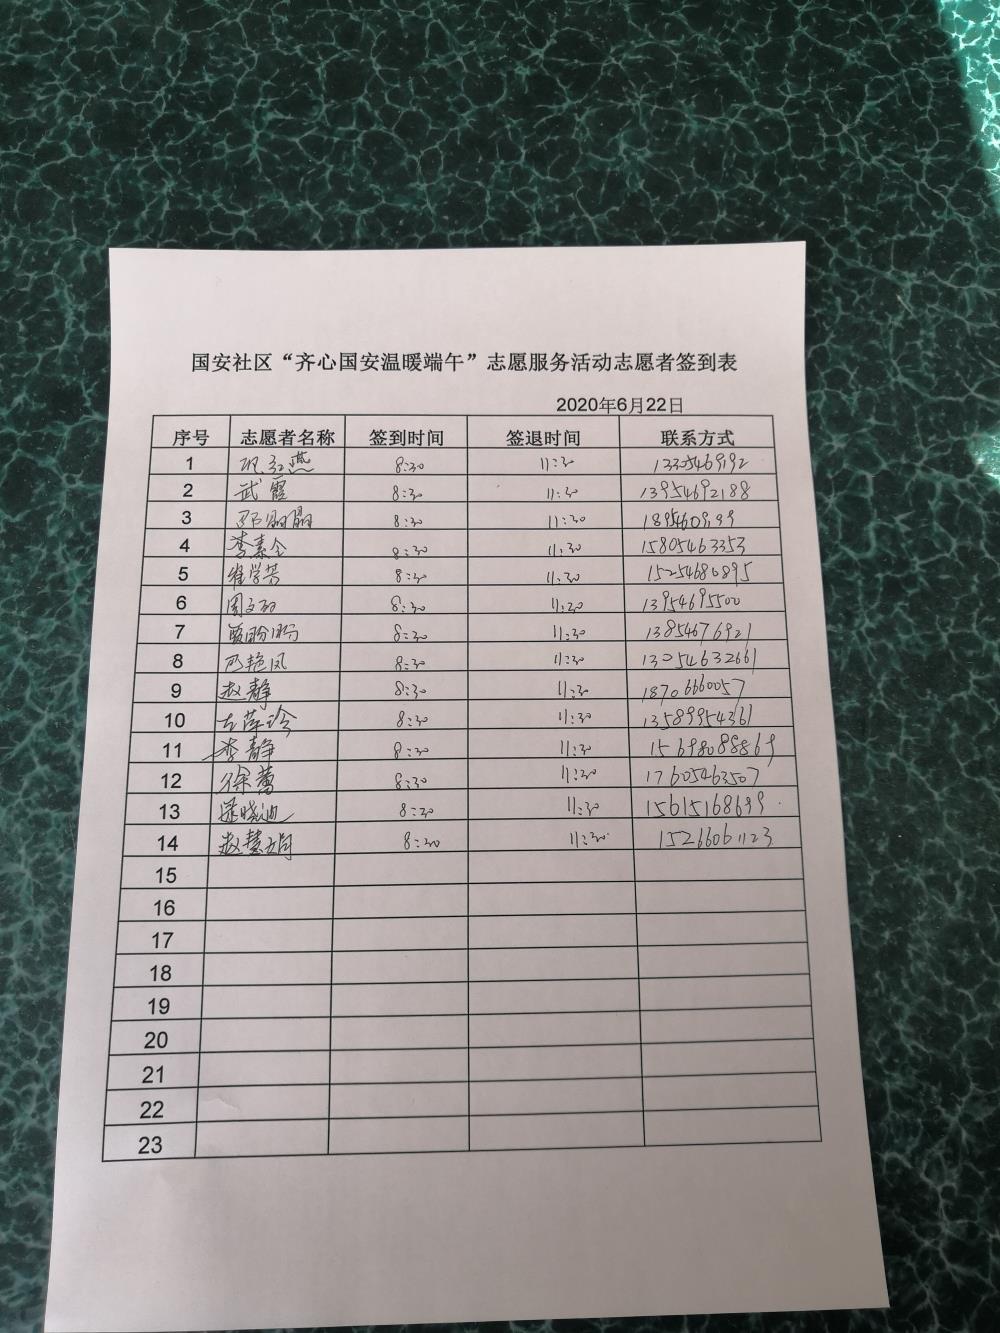 国安社区“齐心国安温暖端午”志愿服务活动志愿者签到表
2020年6月22日
序号 志愿者名称 签到时间 签退时间 联系方式
1 巩红燕 8:30 11:30 13305469192
2 武霞 8:30 11:30 13954692188
3 8:30 11:30
4 李素全 8:30 11:30 15805463353
5 崔学芳 8:30 11:30 15254680895
6 周文 8:30 11:30 13954695500
7 8:30 11:30 13854676921
8 艳凤 8:30 11:30 13054632661
9 赵静 8:30 11:30 18706660057
10 左萍珍 8:30 11:30 13589954361
11 李静 8:30 11:30 15698088869
12 徐蕾 8:30 11:30 17605463507
13 梁晓迪 8:30 11:30 15615168699
14 赵慧娟 8:30 11:30 15266061123
15
16
17
18
19
20
21
22
23